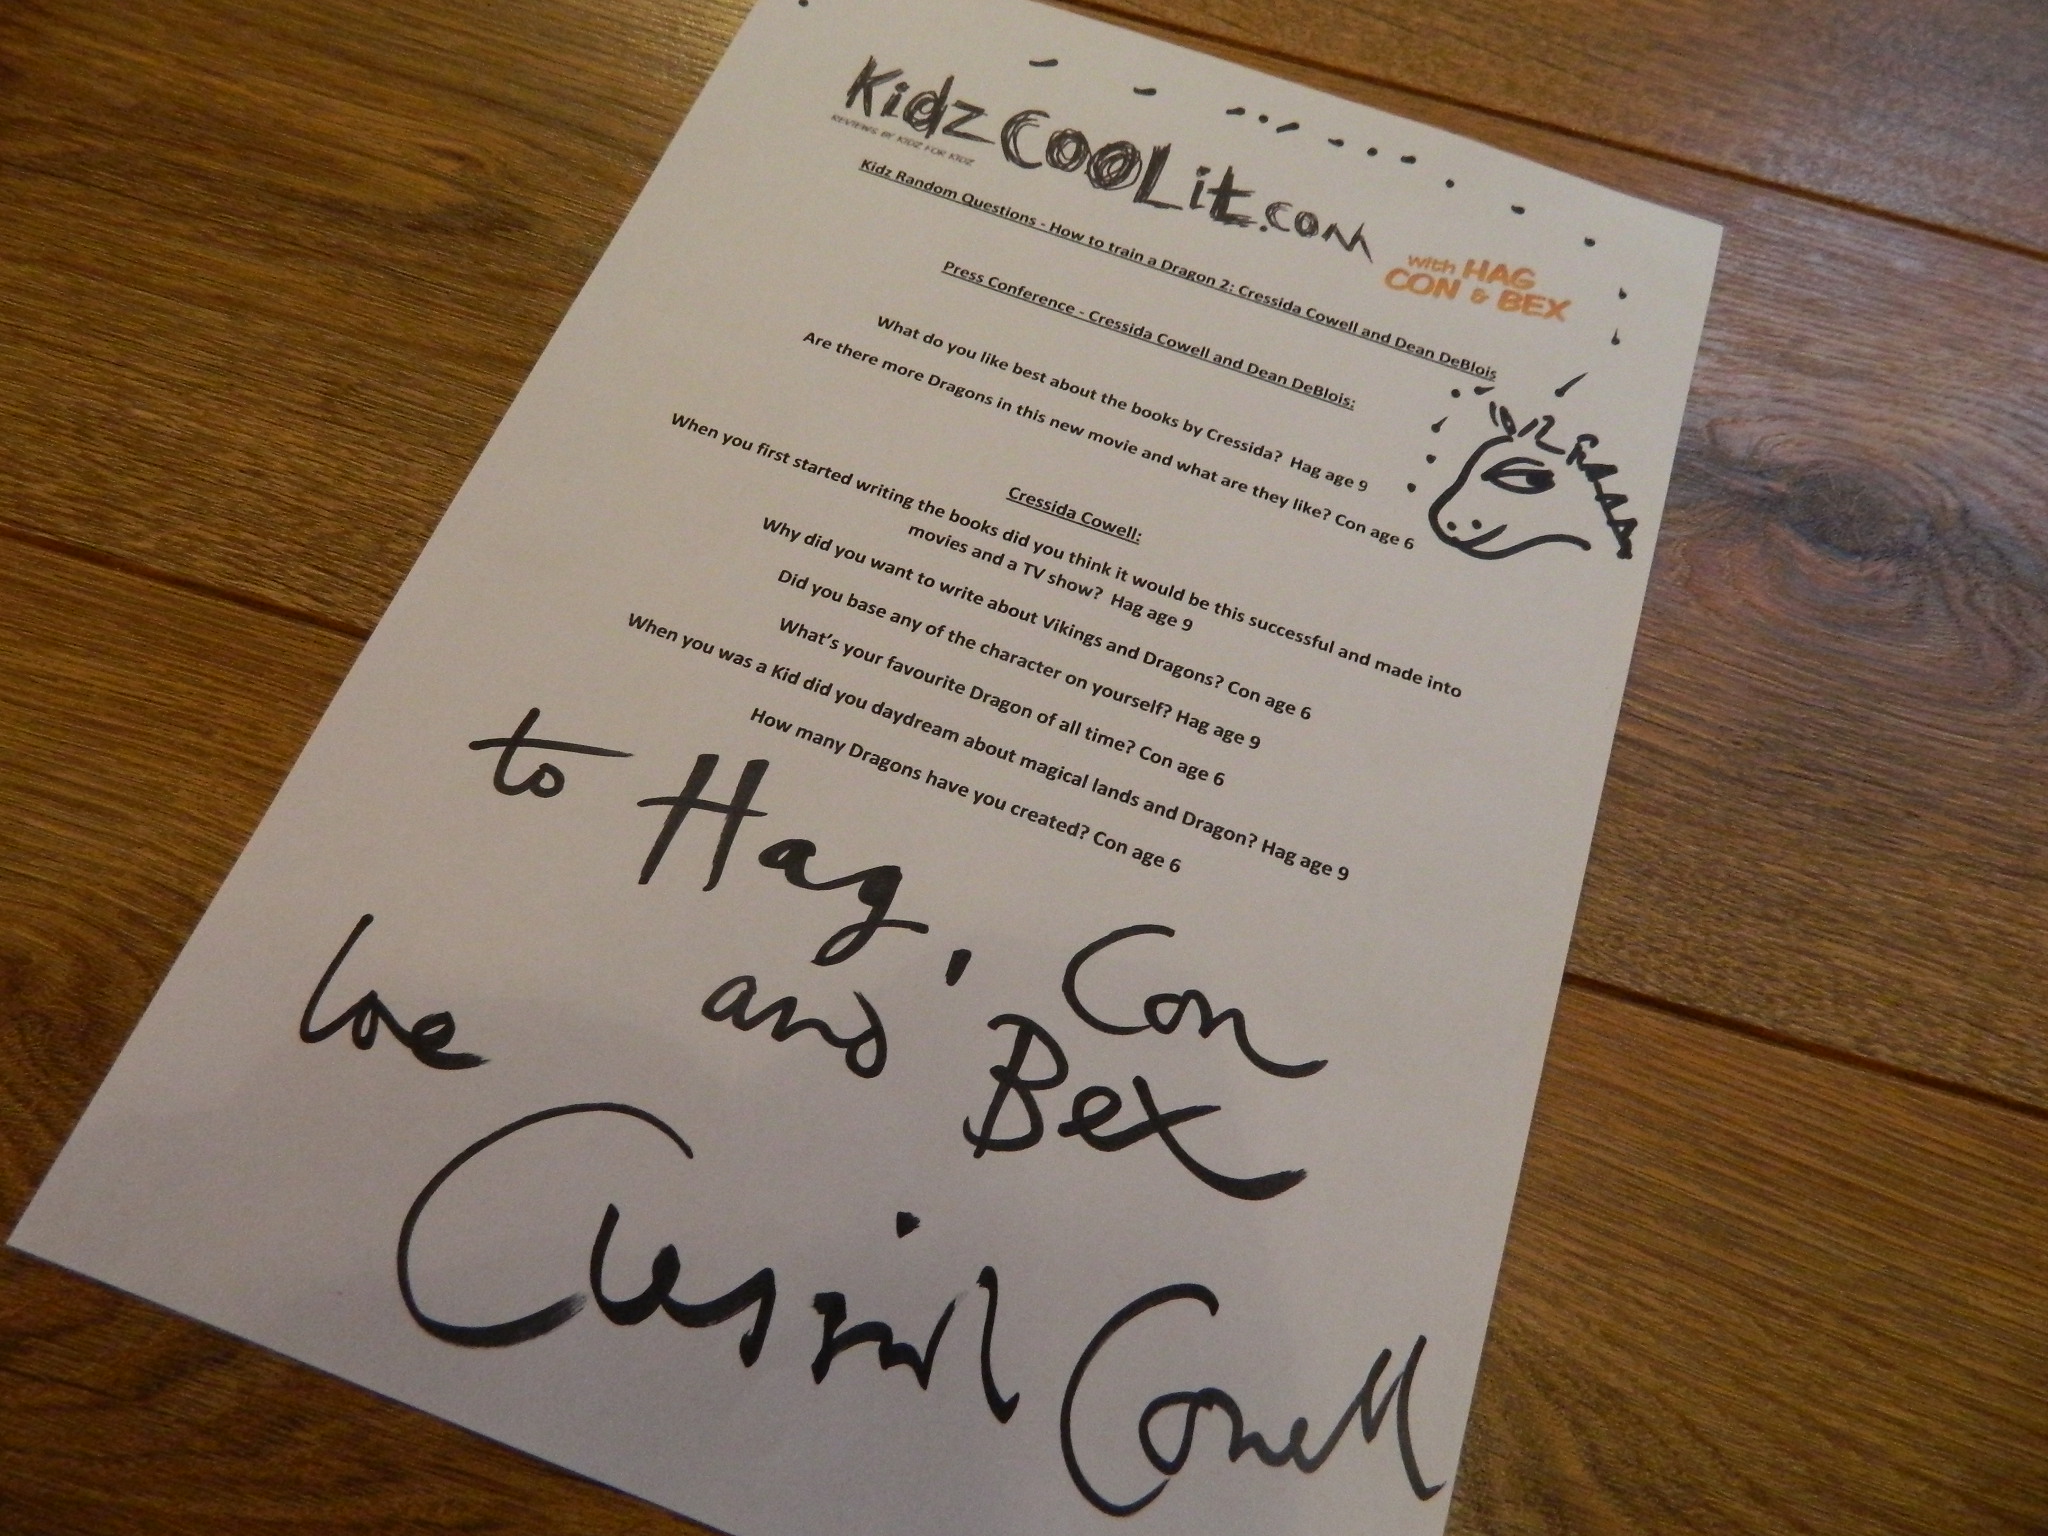 Kidz CooLit.com
REVIEWS BY KIDZ FOR KIDZ
with HAG
CON & BEX
Kidz Random Questions - How to train a Dragon 2: Cressida Cowell and Dean DeBlois
Press Conference - Cressida Cowell and Dean DeBlois:
What do you like best about the books by Cressida? Hag age 9
Are there more Dragons in this new movie and what are they like? Con age 6
Cressida Cowell:
When you first started writing the books did you think it would be this successful and made into
movies and a TV show? Hag age 9
Why did you want to write about Vikings and Dragons? Con age 6
Did you base any of the character on yourself? Hag age 9
What's your favourite Dragon of all time? Con age 6
When you was a Kid did you daydream about magical lands and Dragon? Hag age 9
How many Dragons have you created? Con age 6
to Hag, Con
and Bex
love
Cressida Cowell